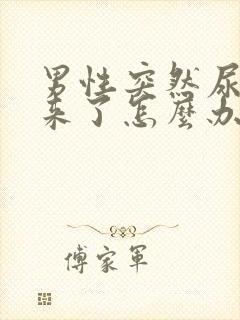 男性突然尿
来了怎麼办
傅家軍